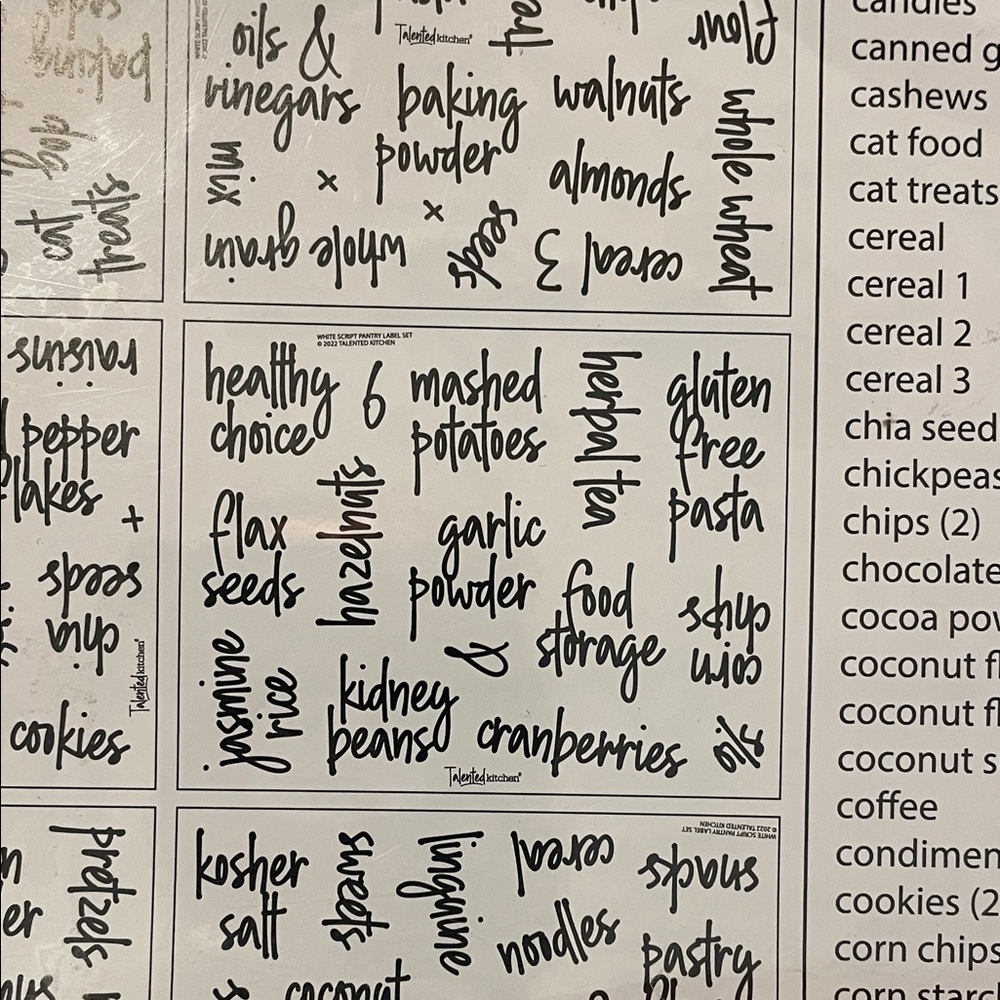 baking
dog
cat
treats
raisins
pepper
flakes
+
seeds
chia
Talented kitchen®
cookies
pretzels
oils &
vinegars
Talented kitchen®
flour
baking
powder
walnuts
almonds
whole wheat
mix
x
x
whole grain
seeds
cereal 3
WHITE SCRIPT PANTRY LABEL SET
© 2022 TALENTED KITCHEN
healthy
choice
6
mashed
potatoes
herpal tea
gluten
free
pasta
flax
seeds
hazelnuts
garlic
powder
food
storage
corn
chips
jasmine
rice
kidney
beans
&
cranberries
Talented kitchen®
WHITE SCRIPT PANTRY LABEL SET
© 2022 TALENTED KITCHEN
kosher
salt
sweets
linguine
cereal
snacks
noodles
pastry
coconut
candles
canned g
cashews
cat food
cat treats
cereal
cereal 1
cereal 2
cereal 3
chia seed
chickpeas
chips (2)
chocolate
cocoa pow
coconut fl
coconut fl
coconut s
coffee
condimen
cookies (2
corn chips
corn starch